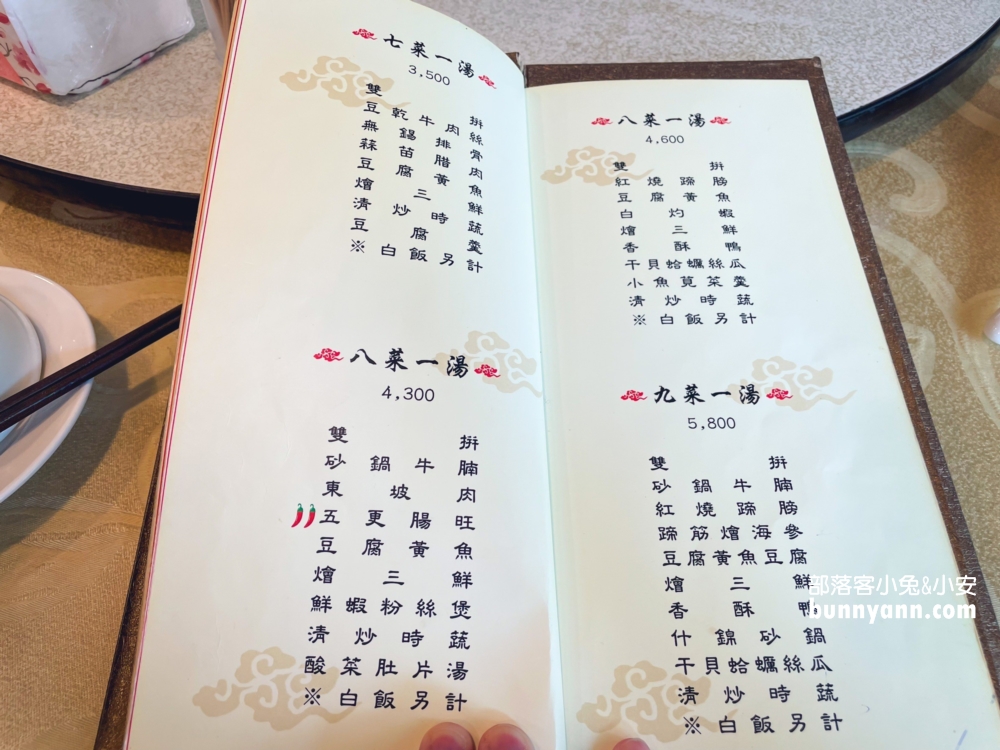 七菜一湯
3,500
雙拼
豆乾牛肉絲
無錫排骨
蒜苗臘肉
豆腐黃魚
燴三鮮
清炒時蔬
豆腐羹
※白飯另計
八菜一湯
4,300
雙拼
砂鍋牛腩
東坡肉
五更腸旺
豆腐黃魚
燴三鮮
鮮蝦粉絲煲
清炒時蔬
酸菜肚片湯
※白飯另計
八菜一湯
4,600
雙拼
紅燒蹄膀
豆腐黃魚
白灼蝦
燴三鮮
香酥鴨
干貝蛤蠣絲瓜
小魚莧菜羹
清炒時蔬
※白飯另計
九菜一湯
5,800
雙拼
砂鍋牛腩
紅燒蹄膀
蹄筋燴海參
豆腐黃魚豆腐
燴三鮮
香酥鴨
什錦砂鍋
干貝蛤蠣絲瓜
清炒時蔬
※白飯另計
部落客小兔&小安
bunnyann.com